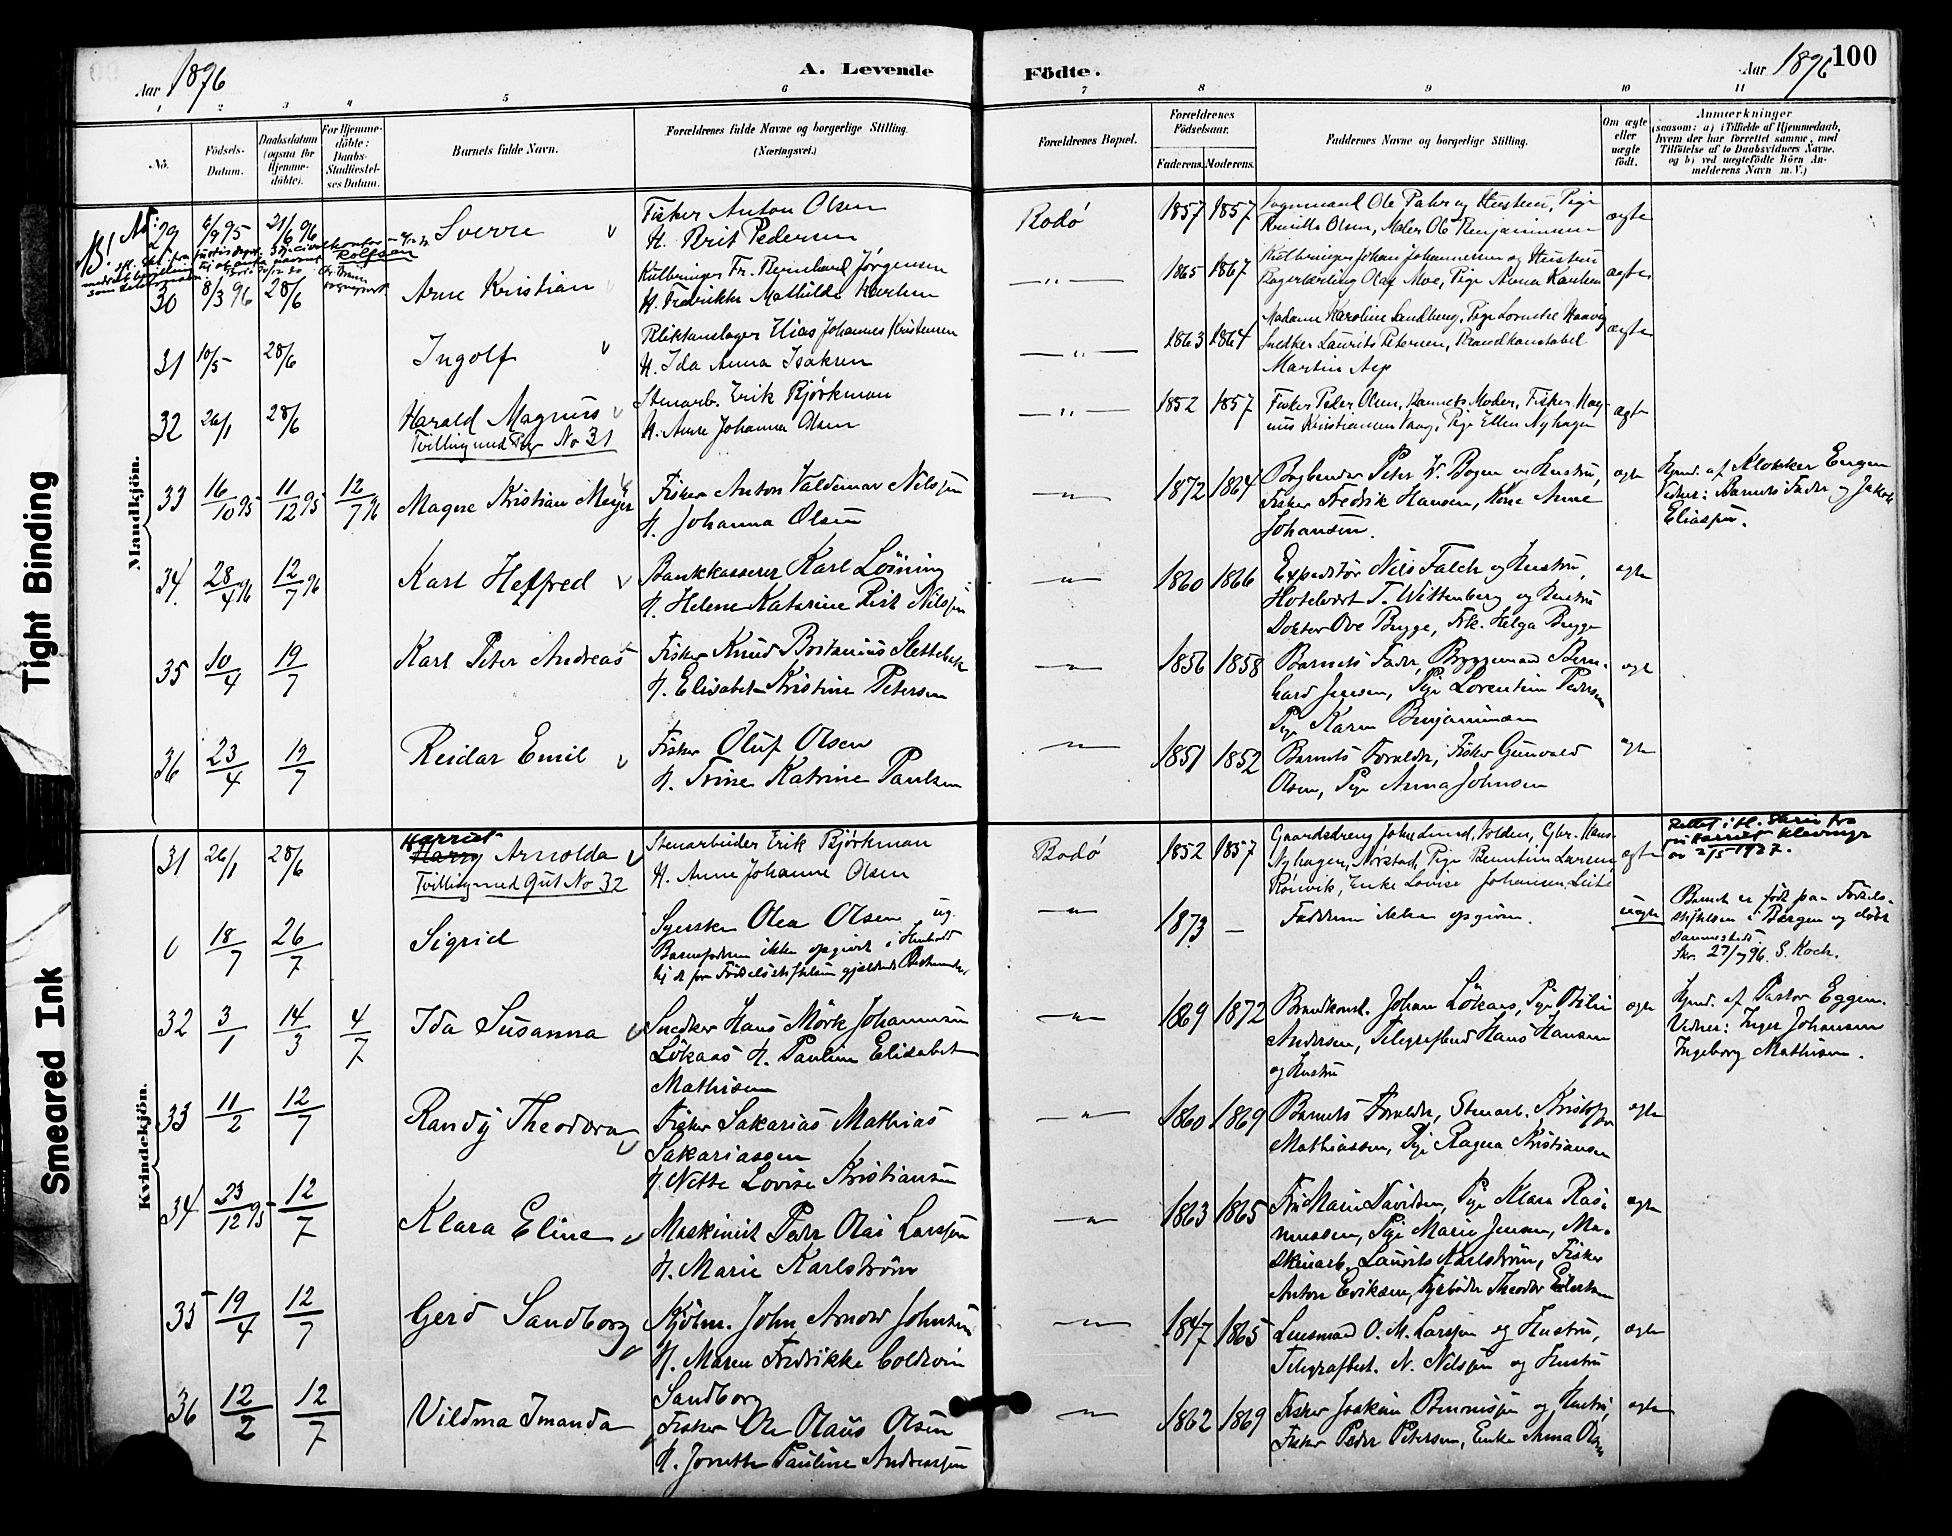 Aar 1896
A. Levende Födte.
Aar 1896 100
1 2 3 4 5 6 7 8 9 10 11
No.
Födsels-Datum.
Daabsdatum (ogsaa for Hjemme-döbte).
For Hjemme-döbte: Daabs-Stadfæstel-ses Datum.
Barnets fulde Navn.
Forældrenes fulde Navne og borgerlige Stilling. (Næringsvei.)
Forældrenes Bopæl.
Forældrenes Födselsaar.
Faderens. Moderens.
Faddernes Navne og borgerlige Stilling.
Om ægte eller uægte födt.
Anmærkninger
(saasom: a) i Tilfælde af Hjemmedaab, hvem der har forrettet samme, med Tilföielse af to Daabsvidners Navne. og b) ved uægtefödte Börn Anmelderens Navn m. V.)
Mandkjön.
29 6/9 95 21/6 96 Sverre
Fisker Anton Olsen
H. Brit Pedersen
Bodö 1857 1857
Olsen, Maler Ole Benjaminsen
ægte
30 8/3 96 28/6 Arne Kristian
Fr. Bernhard Jörgensen
H. Fredrikke Mathilde Karlsen
—"— 1865 1867
Johan Johannessen og Hustru
Bagerlærling Olaf Moe, Pige Anna Karlsen
ægte
31 10/5 28/6 Ingolf
Blikkenslager Elias Johannes Kristensen
H. Ida Anna Isaksen
—"— 1863 1864
Madame Karoline Sandberg, Pige
Snedker Laurits Petersen, Brandkonstabel
Martin Asp
ægte
32 26/1 28/6 Harald Magnus
Tvilling med Pige No 31
Stenarb. Erik Björkman
H. Anne Johanna Olsen
—"— 1852 1857
Fisker Peder Olsen, Barnets Moder, Fisker Mag-
nus Kristiansen Vaag, Pige Ellen Nyhagen
ægte
33 16/10 95 11/12 95 12/7 96 Magne Kristian Meyer
Fisker Anton Valdemar Nilssen
H. Johanna Olsen
—"— 1872 1864
Peter W. Bogen og Hustru,
Fisker Fredrik Hansen, Kone Anne
Johansen.
ægte
Hjmd. af Klokker Engen
Vidner: Barnets Fader og Jakob
Eliassen.
34. 28/4 96 12/7 96 Karl Helfred
Bankkasserer Karl Lösning
H. Helene Katrine Birk Nilssen
—"— 1860 1866
Expeditör Nils Falch og Hustru,
Hotelvært T. Wittenberg og Hustru
Doktor Ove Brygge, Frk. Helga Brygge
ægte
35 10/4 19/7 Karl Peter Andreas
Fisker Knud Bostanius Slettebak
H. Elisabet Kristine Petersen
—"— 1856 1858
Barnets Fader, Byggmand Bern-
hard Jensen, Pige Lorentine Pedersen
Pige Karen Benjaminsen
ægte
36 23/4 19/7 Reidar Emil
Fisker Oluf Olsen
H. Trine Katrine Paulsen
—"— 1851 1852
Barnets Forældre, Fisker Gunvald
Olsen, Pige Anna Johnsen
ægte
Kvindekjön.
31 26/1 28/6 Harriet
Harry Arnolda
Tvilling med Gut No 32
Stenarbeider Erik Björkman
H. Anne Johanne Olsen
Bodö 1852 1857
Gaardsdreng John Lund, Volden, Gbr. Hans
Nyhagen, Pige Berntine Larsen
Rönvik, Enke Lovise Johansen, Leite
ægte
Rettet i h. Skriv fra
fru Harriet Klevinge
av 2/5 1927.
0 18/7 26/7 Sigrid
Syerske Olea Olsen ug.
Barnefaderen ikke opgivet i Henhold
til de for Födselsstiftelsen gjældende Bestemmelser
—"— 1873 —
Fadderne ikke opgivne.
uægte
Barnet er födt paa Födsels-
stiftelsen i Bergen og döbt
sammesteds
Skr. 27/7 96. S. Koch.
32 3/1 14/3 4/7 Ida Susanna
Snedker Hans Mörk Johannesen
Lökaas H. Pauline Elisabet
Mathisen
—"— 1869 1872
Brandkonst. Johan Lökaas, Pige Otilie
Andersen, Telegrafbud Hans Hansen
og Hustru
ægte
Hjmd. af Pastor Eggen.
Vidner: Inger Johansen
Ingeborg Mathisen.
33 11/2 12/7 Randy Theodora
Fisker Sakarias Mathias
Sakariassen
H. Nette Lovise Kristiansen
—"— 1860 1869
Barnets Forældre, Stenarb. Kristoffer
Mathiassen, Pige Ragna Kristiansen
ægte
34 23/12 95 12/7 Klara Eline
Maskinist Peder Olai Larssen
H. Marie Karlström
—"— 1863 1865
Fru Marie Davidsen, Pige Klara Ras-
mussen, Pige Marie Jensen, Ma-
skinarb. Laurits Karlström, Fisker
Anton Eriksen, Theodor
ægte
35 19/4 12/7 Gerd Sandborg
Kjölm. John Arnow Johnsen
H. Maren Fredrikke Coldevin
Sandborg
—"— 1847 1865
Lensmand O. M. Larssen og Hustru,
Telegrafbest. N. Nilssen og Hustru
ægte
36 12/2 12/7 Vildma Imanda
Fisker Ole Olaus Olsen
H. Jonette Pauline Andreassen
—"— 1862 1869
Fisker Joakim Benonisen og Hustru,
Fisker Peder Petersen, Enke Anna Olsen
ægte
Tight Binding
Smeared Ink